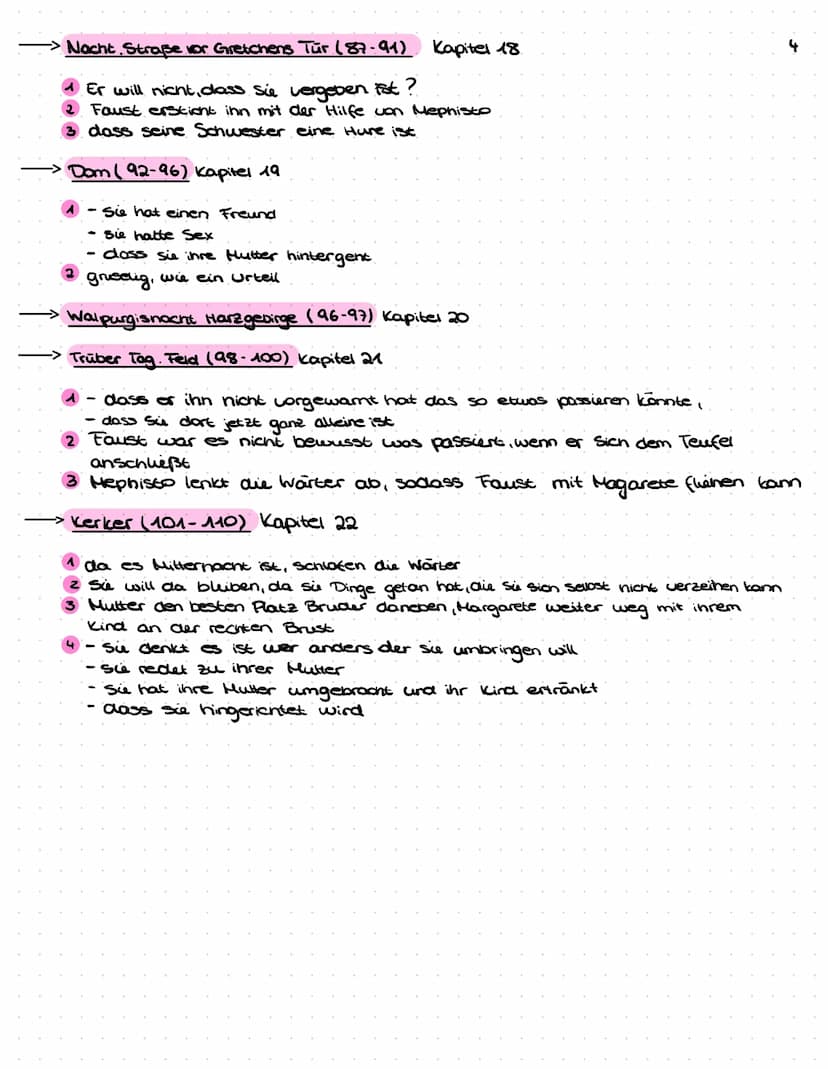 → Nacht. Straße vor Gretchens Tür (87-91) Kapitel 18 4
1 Er will nicht, dass sie vergeben ist?
2 Faust ersticht ihn mit der Hilfe von Mephisto
3 dass seine Schwester eine Hure ist
→ Dom (92-96) Kapitel 19
1 - Sie hat einen Freund
- Sie hatte Sex
- dass sie ihre Mutter hintergeht
2 gruselig, wie ein Urteil
→ Walpurgisnacht Harzgebirge (96-97) Kapitel 20
→ Trüber Tag. Feld (98-100) Kapitel 21
1 - dass er ihn nicht vorgewarnt hat das so etwas passieren könnte,
- dass sie dort jetzt ganz alleine ist
2 Faust war es nicht bewusst was passiert, wenn er sich dem Teufel
anschließt
3 Mephisto lenkt die Wärter ab, sodass Faust mit Magarete fliehen kann
→ Kerker (101-110) Kapitel 22
1 da es Mitternacht ist, schlafen die Wärter
2 Sie will da bleiben, da sie Dinge getan hat, die sie sich selbst nicht verzeihen kann
3 Mutter den besten Platz Bruder daneben, Margarete weiter weg mit ihrem
Kind an der rechten Brust
4 - Sie denkt es ist wer anders der sie umbringen will
- sie redet zu ihrer Mutter
- Sie hat ihre Mutter umgebracht und ihr Kind ertränkt
- dass sie hingerichtet wird